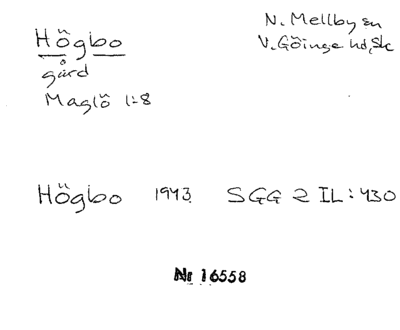 Högbo
N. Mellby sn
V. Göinge hd, Sk
gård
Maglö 1:8
Högbo 1943 SGG 2 IL: 430
Nr 16558